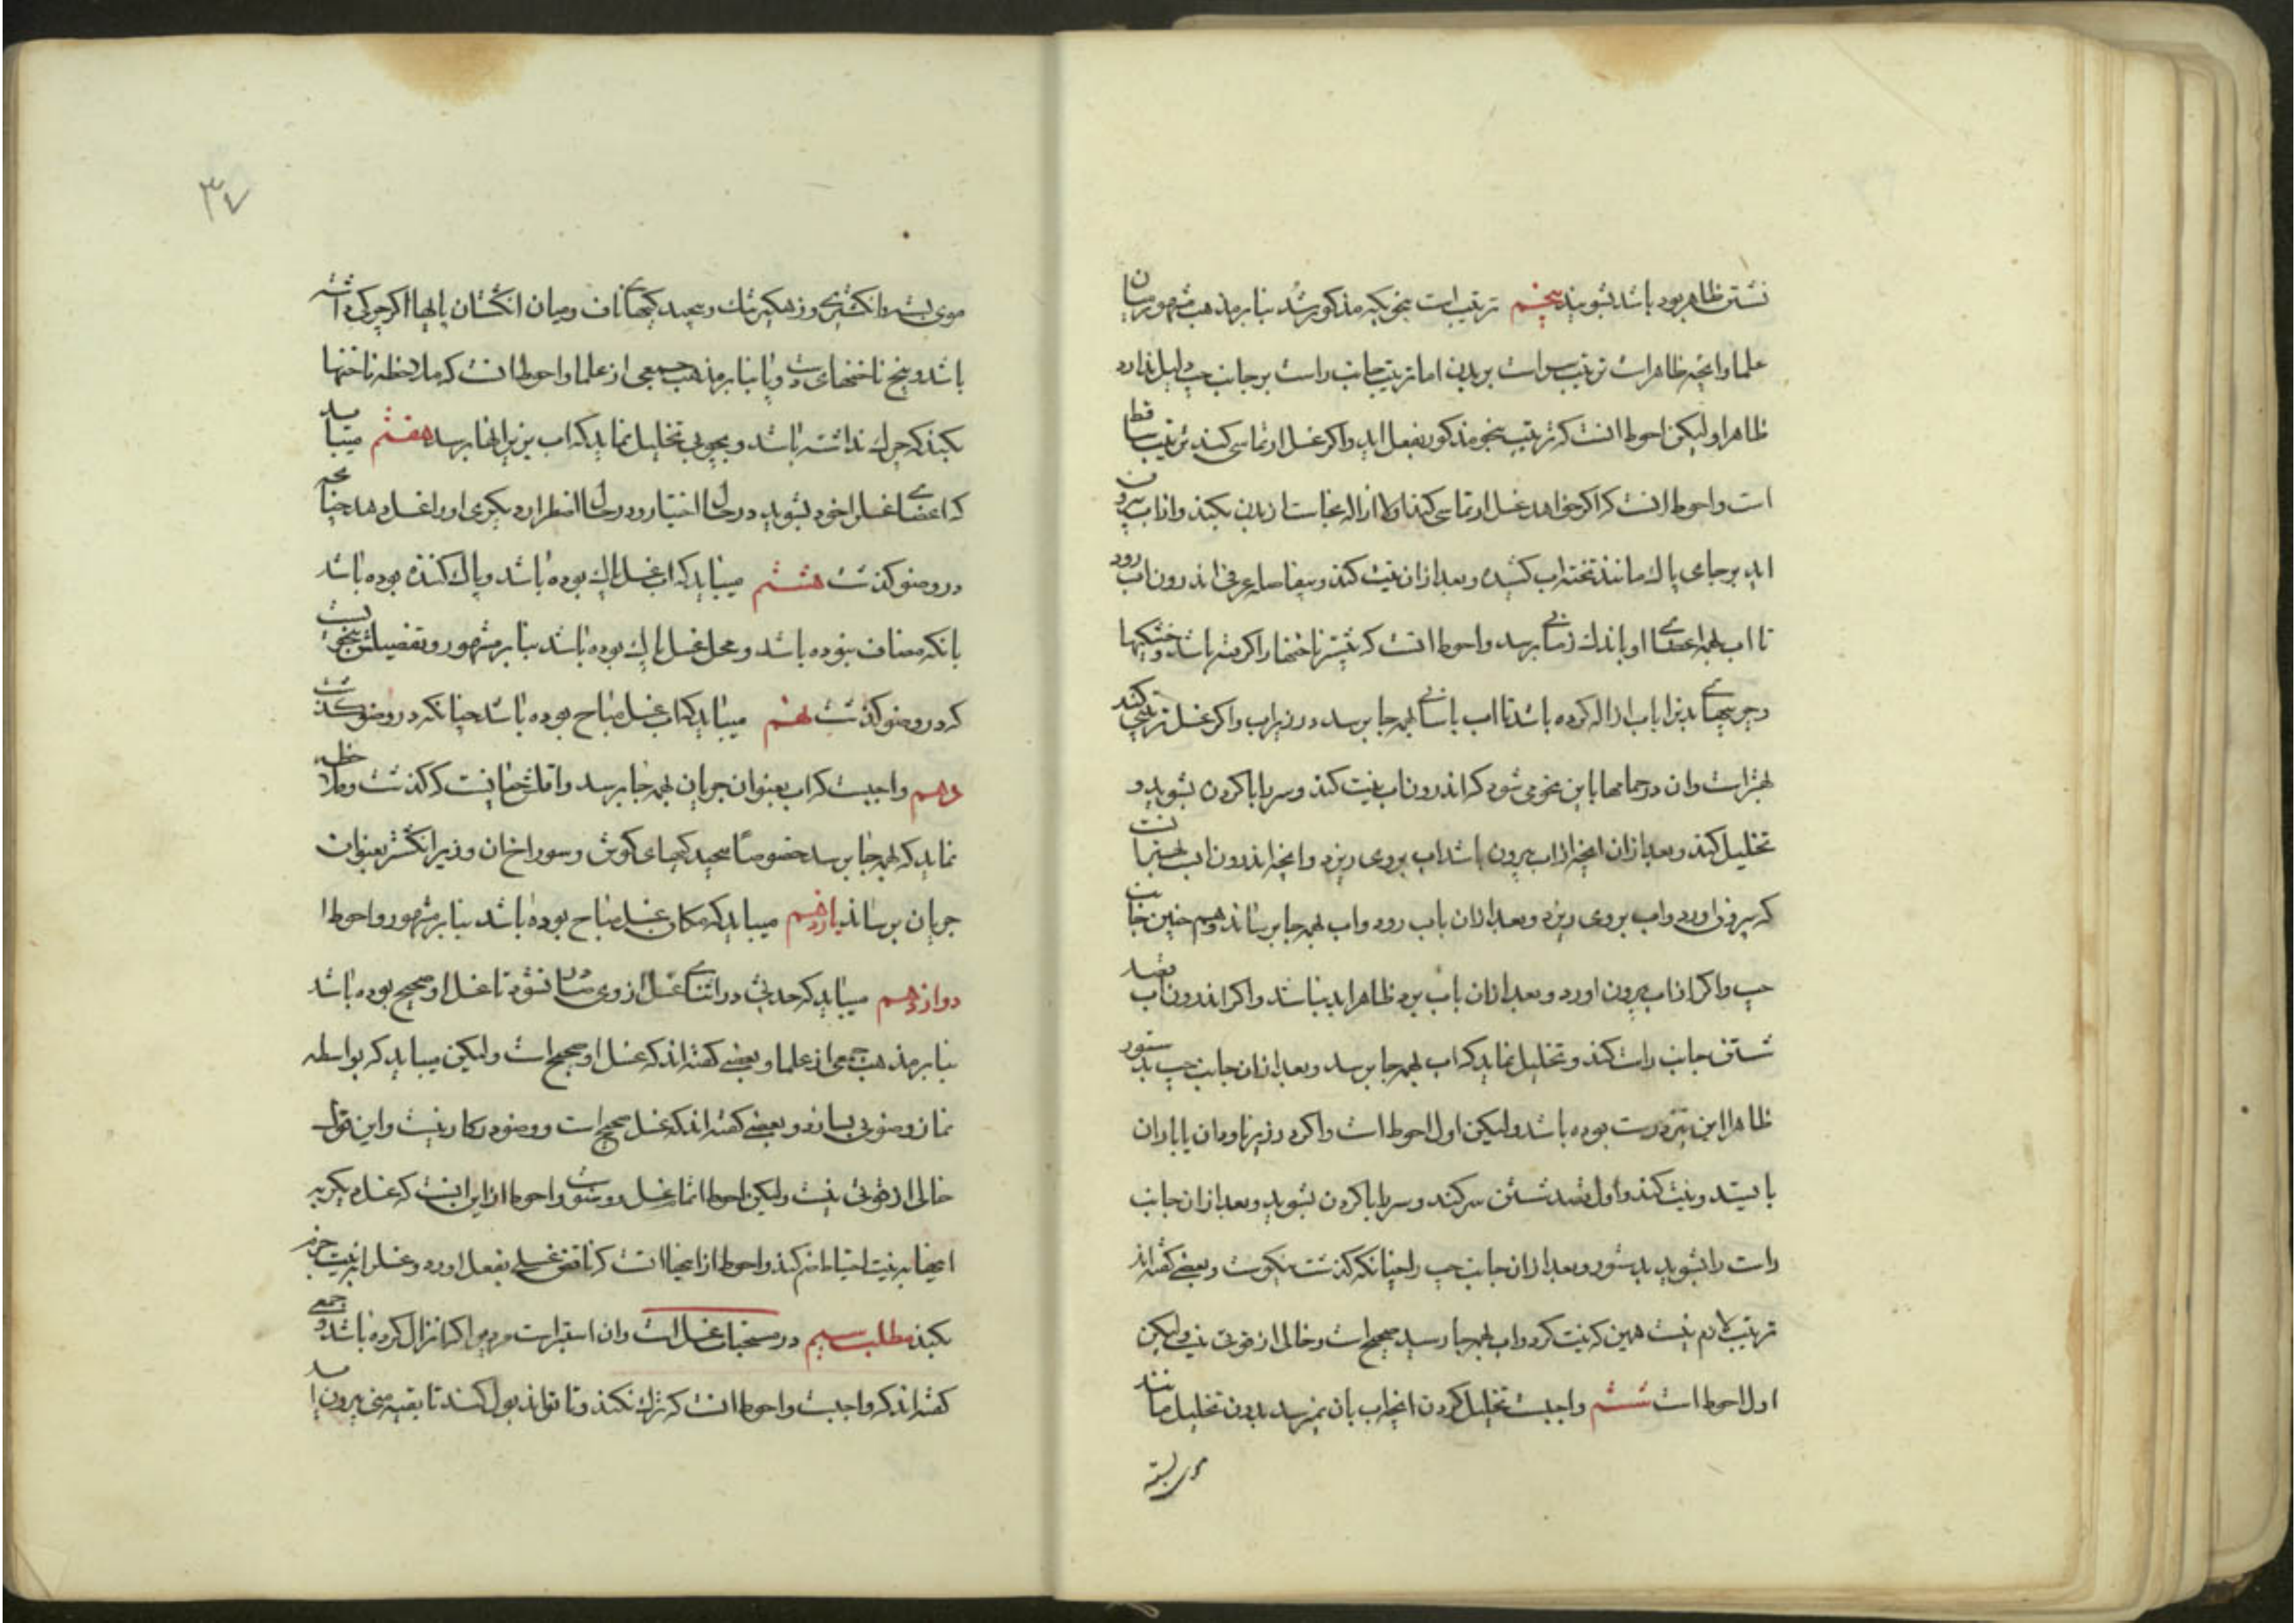 نشستن ظاهر بوده باشد بشویند پنجم ترتیب است بنحویکه مذکور شد بنابر مذهب مشهور میان
علما و آنچه ظاهرست ترتیب سر است بر بدن اما ترتیب جانب راست بر جانب چپ دلیل ندارد
ظاهرا و لیکن احوط آنست که ترتیب بنحو مذکور بفعل آید و اگر غسل ارتماسی کند ترتیب ساقط
است و احوط آنست که اگر خواهد غسل ارتماسی کند اولا ازاله نجاست از بدن بکند و از آب بیرون
آید بر جای پاک مانند تخته آب کشیده و بعد از آن نیت کند و بیفاصله عرفی اندرون آب رود
تا آب بهمه اعضای او باندک زمانی برسد و احوط آنست که پیشتر ناخنها را گرفته باشد و خشکیها
و چربیهای بدن را بآب ازاله کرده باشد تا آب بآسانی بهمه جا برسد در زیر آب و اگر غسل ترتیبی کند
بهتر است و آن در حمامها باین نحو می شود که اندرون آب نیت کند و سر را با گردن بشوید و
تخلیل کند و بعد از آن آنچه از آب بیرون باشد آب بروی ریزد و آنچه اندرون آبست بهمنیت
که بیرون آورد و آب بروی ریزد و بعد از آن بآب رود و آب بهمه جا برساند و همچنین جانب
چپ و اگر از آب بیرون آورد و بعد از آن بآب برد ظاهرا بد نباشد و اگر اندرون آب قصد
شستن جانب راست کند و تخلیل نماید که آب بهمه جا برسد و بعد از آن جانب چپ بدستور
ظاهرا این نیز درست بوده باشد و لیکن اول احوط است و اگر در زیر ناودان یا باران
بایستد و نیت کند و اول قصد شستن سر کند و سر را با گردن بشوید و بعد از آن جانب
راست را بشوید بدستور و بعد از آن جانب چپ را چنانکه گذشت نیکوست و بعضی گفته اند
ترتیب لازم نیست همین که نیت کرد و آب بهمه جا رسید صحیح است و خالی از قوتی نیست و لیکن
اول احوط است ششم واجبست تخلیل کردن آنچه آب بآن نمیرسد بدون تخلیل مانند
موی بسته
۳۷
موی بسته و انگشتری و زهگیر تنگ و پیچیدگیهای ناف و میان انگشتان پاها اگر چرکی داشته
باشد و بیخ ناخنهای دست و پا بنابر مذهب جمعی از علما و احوط آنست که ملاحظه ناخنها
بکند که چرک نداشته باشد و بچوبی تخلیل نماید که آب بزیر آنها برسد هفتم میباید
که اعضای غسل را خود بشوید در حال اختیار و در حال اضطرار دیگری او را غسل دهد چنانچه
در وضو گذشت هشتم میباید که آب غسل پاک بوده باشد و پاک کننده بوده باشد
بآنکه مضاف نبوده باشد و محل غسل پاک بوده باشد بنابر مشهور و تفصیلش بنحویست
که در وضو گذشت نهم میباید که آب غسل مباح بوده باشد چنانکه در وضو گذشت
دهم واجبست که آب بعنوان جریان بهمه جا برسد و اقلش همانست که گذشت و ملاحظه
نماید که بهمه جا برسد خصوصا پیچیدگیهای گوش و سوراخ آن و زیر انگشتر بعنوان
جریان برساند یازدهم میباید که مکان غسل مباح بوده باشد بنابر مشهور و احوط
دوازدهم میباید که حدثی در اثنای غسل از وی صادر نشود تا غسل او صحیح بوده باشد
بنابر مذهب جمعی از علما و بعضی گفته اند که غسل او صحیح است و لیکن میباید که بواسطه
نماز وضوئی بسازد و بعضی گفته اند که غسل صحیح است و وضو در کار نیست و این قول
خالی از قوتی نیست و لیکن احوط اتمام غسل و وضوست و احوط از این آنست که غسل دیگر به
اینها به نیت احتیاط ضم کند و احوط از اینها آنست که ناقض غسلی بفعل آورد و غسل را نیت جزم
بکند مطلب سیم در مستحبات غسل است و آن استبراست مرد را هرگاه انزال کرده باشد و جمعی
گفته اند که واجبست و احوط آنست که ترک نکند و تا تواند بول کند تا بقیه منی بیرون آید